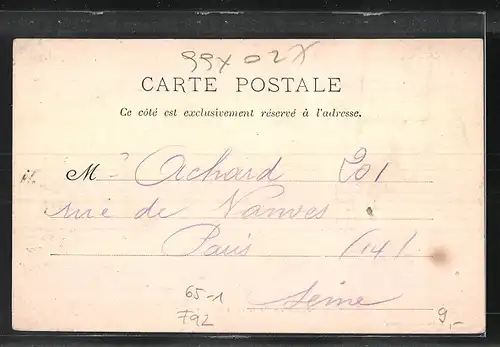 99x02x
CARTE POSTALE
Ce côté est exclusivement réservé à l'adresse.
M Achard 201
rue de Vanves
Paris (14)
65-1
F92
Seine
9,-